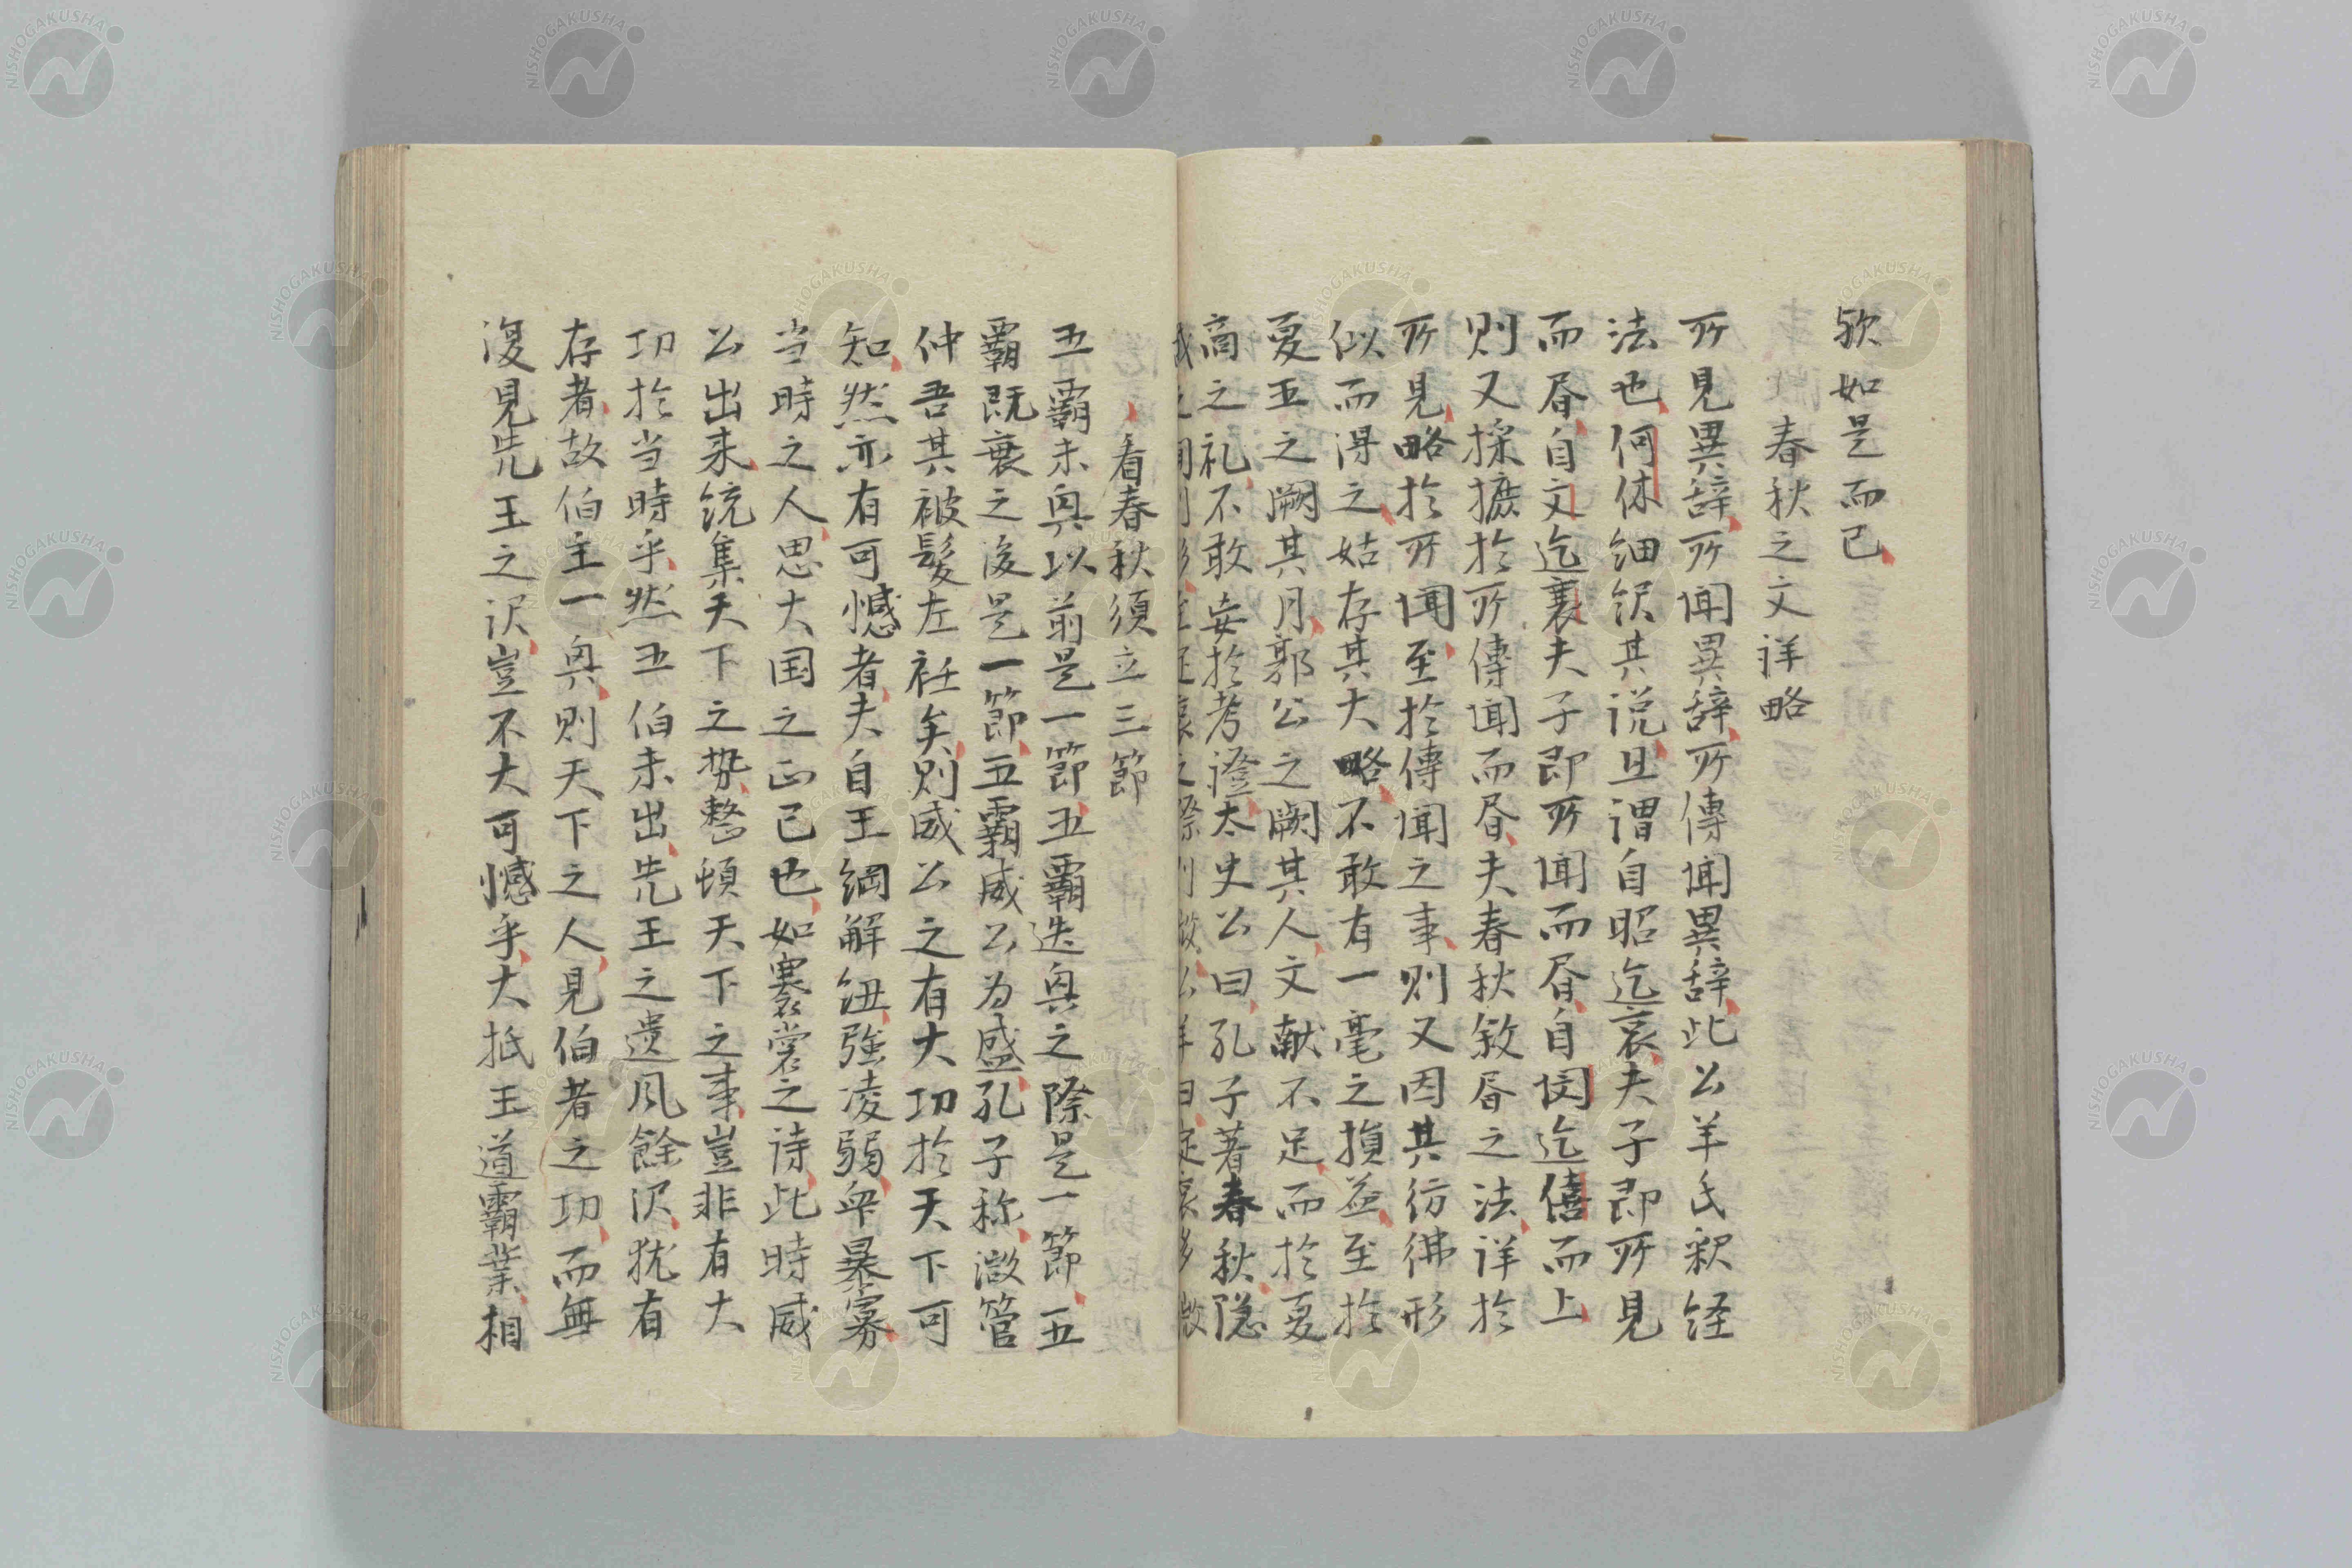 欤如是而已
春秋之文详略
所見異辞所闻異辞所傳闻異辞此公羊氏釈経
法也何休细釈其说且谓自昭迄哀夫子即所見
而昏自文迄襄夫子即所闻而昏自闵迄僖而上
则又採摭於所傳闻而昏夫春秋敘昏之法详於
所見略於所闻至於傳闻之事则又因其彷彿形
似而得之姑存其大略不敢有一毫之損益至於
夏五之阙其月郭公之阙其人文献不足而於夏
商之礼不敢妄於考證太史公曰孔子著春秋隐
看春秋須立三節
五霸未興以前是一節五霸迭興之際是一節五
霸既衰之後是一節五霸威公为盛孔子称微管
仲吾其被髮左衽矣则威公之有大功於天下可
知然亦有可憾者夫自王綱解纽強凌弱衆暴寡
当時之人思大国之正已也如褰裳之诗此時威
公出来统集天下之势整頓天下之事豈非有大
功於当時乎然五伯未出先王之遗风餘沢犹有
存者故伯主一興则天下之人見伯者之功而無
復見先王之沢豈不大可憾乎大抵王道霸業相
NISHOGAKUSHA